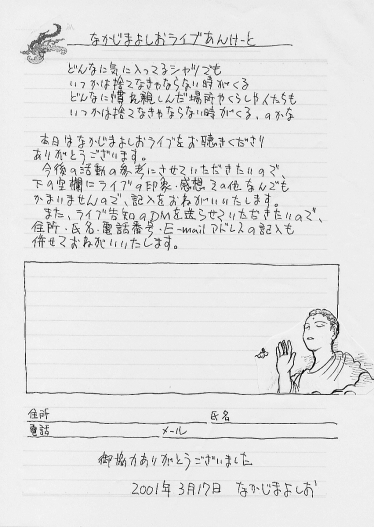 なかじまよしおライブあんけーと
どんなに気に入ってるシャツでも
いつかは捨てなきゃならない時がくる
どんなに慣れ親しんだ場所やくらしや人たちも
いつかは捨てなきゃならない時がくる、のかな
本日はなかじまよしおライブをお聴きくださり
ありがとうございます。
今後の活動の参考にさせていただきたいので、
下の空欄にライブの印象・感想その他なんでも
かまいませんので、記入をおねがいいたします。
また、ライブ告知のDMを送らせていただきたいので、
住所・氏名・電話番号・E-mailアドレスの記入も
併せておねがいいたします。
住所 氏名
電話 メール
御協力ありがとうございました
2001年3月17日 なかじまよしお